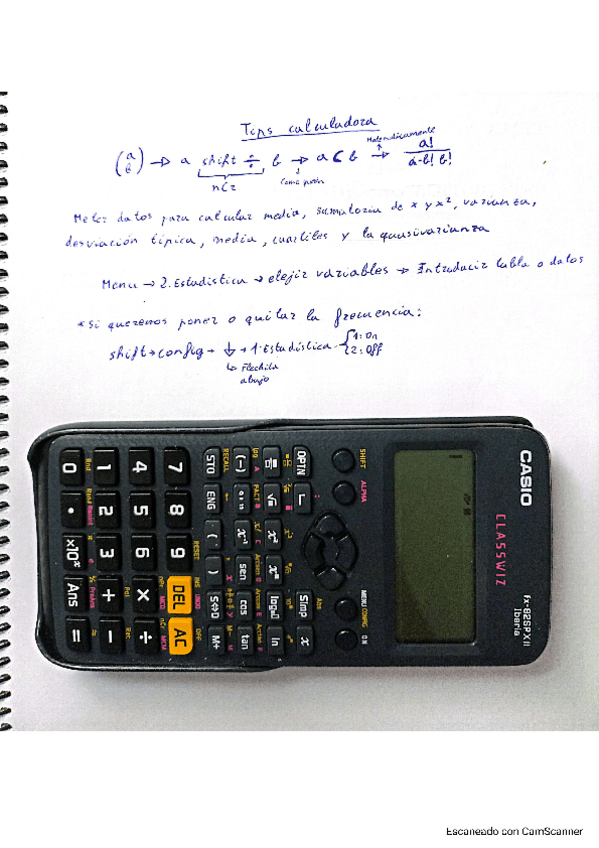 Tips calculadora
(a b) → a shift ÷ b → a C b → a! / a-b! b!
nCr
Como ponen
Matemáticamente
Meter datos para calcular media, sumatoria de x y x², varianza,
desviación típica, media, cuartiles y la quasivarianza
Menu → 2. Estadística → elejir variables → Introducir tabla o datos
*Si queremos poner o quitar la frecuencia:
shift → config → ↓ → 1. Estadística { 1: On
2: Off
↳ Flechita
abajo
CASIO
CLASSWIZ
fx-82SPXII
Iberia
SHIFT ALPHA MENU CONFIG ON
OPTN Simp x
√ x² xⁿ log ln
(-) x⁻¹ sen cos tan
STO ENG ( ) S⇔D M+
RECALL
7 8 9 DEL AC
4 5 6 × ÷
1 2 3 + −
0 . ×10ˣ Ans =
Escaneado con CamScanner